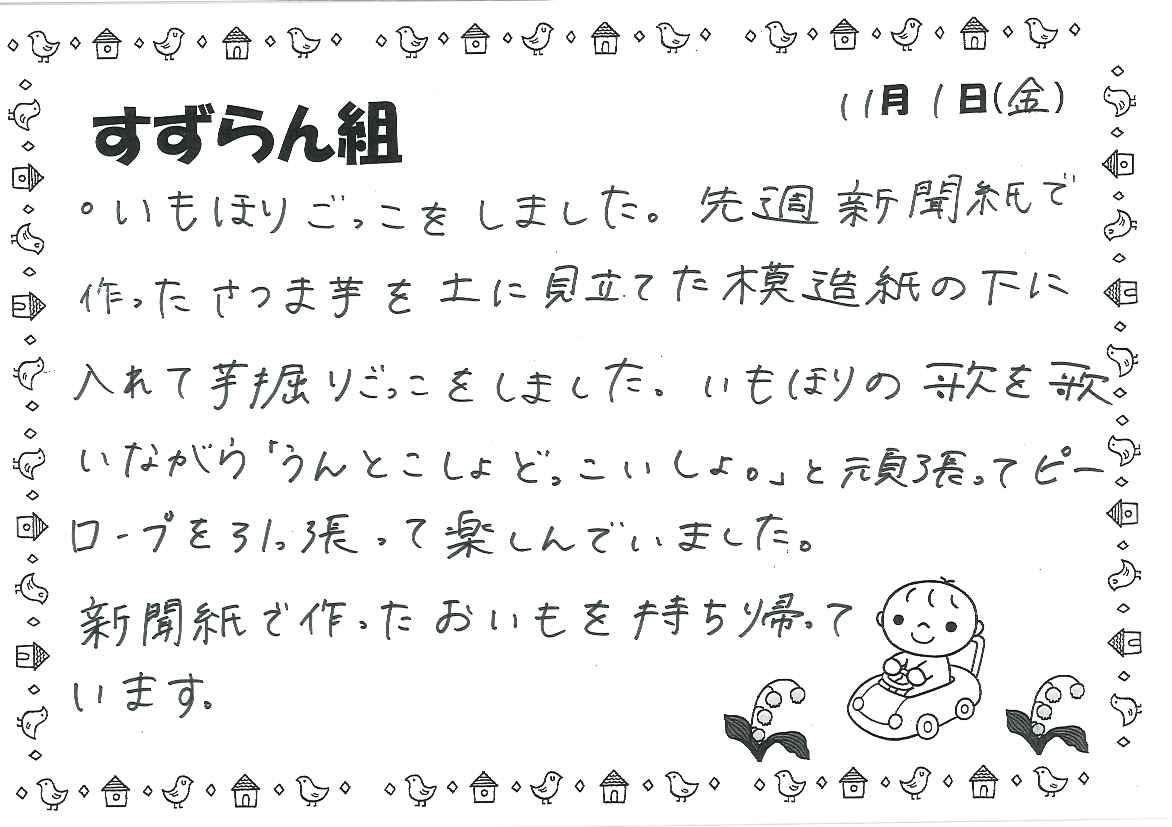 11月1日(金)
すずらん組
○いもほりごっこをしました。先週新聞紙で
作ったさつま芋を土に見立てた模造紙の下に
入れて芋掘りごっこをしました。いもほりの歌を歌
いながら「うんとこしょどっこいしょ。」と頑張ってピー
ロープを引っ張って楽しんでいました。
新聞紙で作ったおいもを持ち帰って
います。